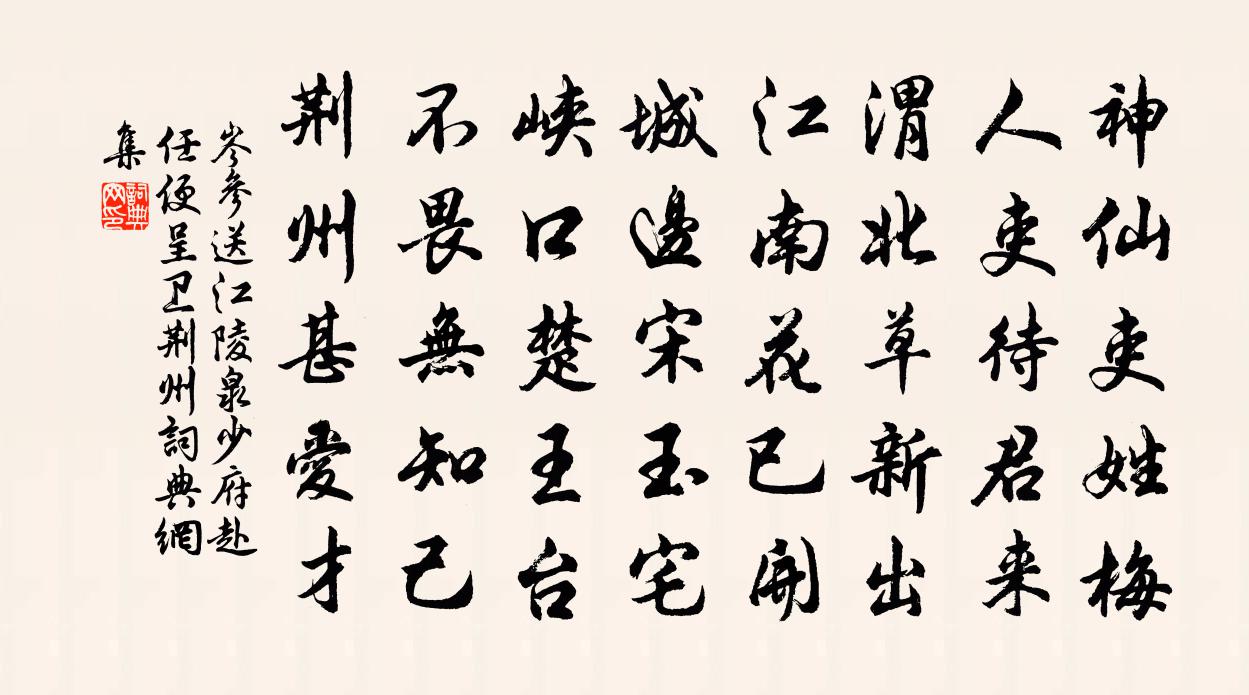 神仙吏姓梅
人吏待君来
渭北草新出
江南花已開
城邊宋玉宅
峽口楚王台
不畏無知己
荆州甚愛才
岑參送江陵泉少府赴
任便呈卫荆州詞典網
集
詞典网印